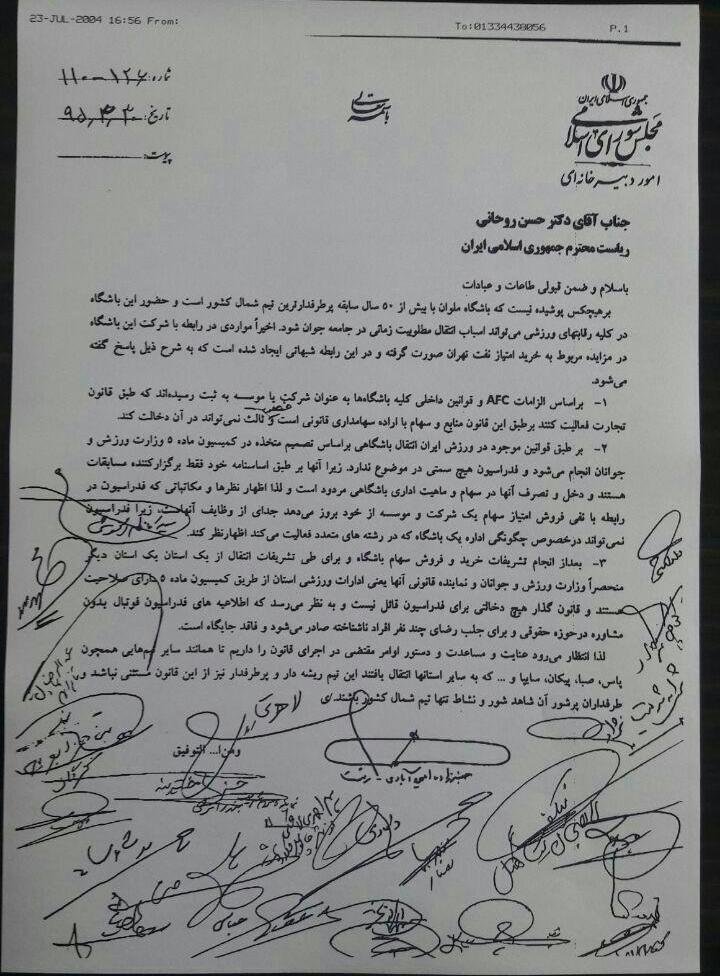 23-JUL-2004 16:56 From:
To:01334438056
P.1
جمهوری اسلامی ایران
مجلس شورای اسلامی
امور دبیرخانه‌ای
باسمه تعالی
شماره: ۱۱۰-۱۲۶
تاریخ: ۹۵/۴/۳۰
پیوست:
جناب آقای دکتر حسن روحانی
ریاست محترم جمهوری اسلامی ایران
باسلام و ضمن قبولی طاعات و عبادات
برهیچکس پوشیده نیست که باشگاه ملوان با بیش از ۵۰ سال سابقه پرطرفدارترین تیم شمال کشور است و حضور این باشگاه
در کلیه رقابتهای ورزشی می‌تواند اسباب انتقال مطلوبیت زمانی در جامعه جوان شود. اخیراً مواردی در رابطه با شرکت این باشگاه
در مزایده مربوط به خرید امتیاز نفت تهران صورت گرفته و در این رابطه شبهاتی ایجاد شده است که به شرح ذیل پاسخ گفته
می‌شود.
۱- براساس الزامات AFC و قوانین داخلی کلیه باشگاه‌ها به عنوان شرکت یا موسسه به ثبت رسیده‌اند که طبق قانون
تجارت فعالیت کنند برطبق این قانون منابع و سهام با اراده سهامداری قانونی است و ثالث نمی‌تواند در آن دخالت کند.
۲- بر طبق قوانین موجود در ورزش ایران انتقال باشگاهی براساس تصمیم متخذه در کمیسیون ماده ۵ وزارت ورزش و
جوانان انجام می‌شود و فدراسیون هیچ سمتی در موضوع ندارد. زیرا آنها بر طبق اساسنامه خود فقط برگزارکننده مسابقات
هستند و دخل و تصرف آنها در سهام و ماهیت اداری باشگاهی مردود است و لذا اظهار نظرها و مکاتباتی که فدراسیون در
رابطه با نفی فروش امتیاز سهام یک شرکت و موسسه از خود بروز می‌دهد جدای از وظایف آنهاست، زیرا فدراسیون
نمی‌تواند درخصوص چگونگی اداره یک باشگاه که در رشته های متعدد فعالیت می‌کند اظهارنظر کند.
۳- بعداز انجام تشریفات خرید و فروش سهام باشگاه و برای طی تشریفات انتقال از یک استان یک استان دیگر
منحصراً وزارت ورزش و جوانان و نماینده قانونی آنها یعنی ادارات ورزشی استان از طریق کمیسیون ماده ۵ دارای صلاحیت
هستند و قانون گذار هیچ دخالتی برای فدراسیون قائل نیست و به نظر می‌رسد که اطلاعیه های فدراسیون فوتبال بدون
مشاوره درحوزه حقوقی و برای جلب رضای چند نفر افراد ناشناخته صادر می‌شود و فاقد جایگاه است.
لذا انتظار می‌رود عنایت و مساعدت و دستور اوامر مقتضی در اجرای قانون را داریم تا همانند سایر تیم‌هایی همچون
پاس، صبا، پیکان، سایپا و ... که به سایر استانها انتقال یافتند این تیم ریشه دار و پرطرفدار نیز از این قانون مستثنی نباشد و
طرفداران پرشور آن شاهد شور و نشاط تنها تیم شمال کشور باشند./ی
ومن ا... التوفیق